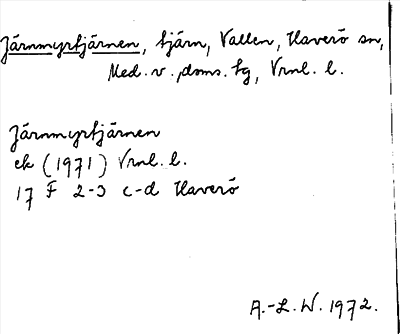 Järnmyrtjärnen, tjärn, Vallen, Haverö sn,
Med. v. doms. tg, Vrml. l.
Järnmyrtjärnen
ek (1971) Vrml. l.
17 F 2-3 c-d Haverö
A.-L. W. 1972.